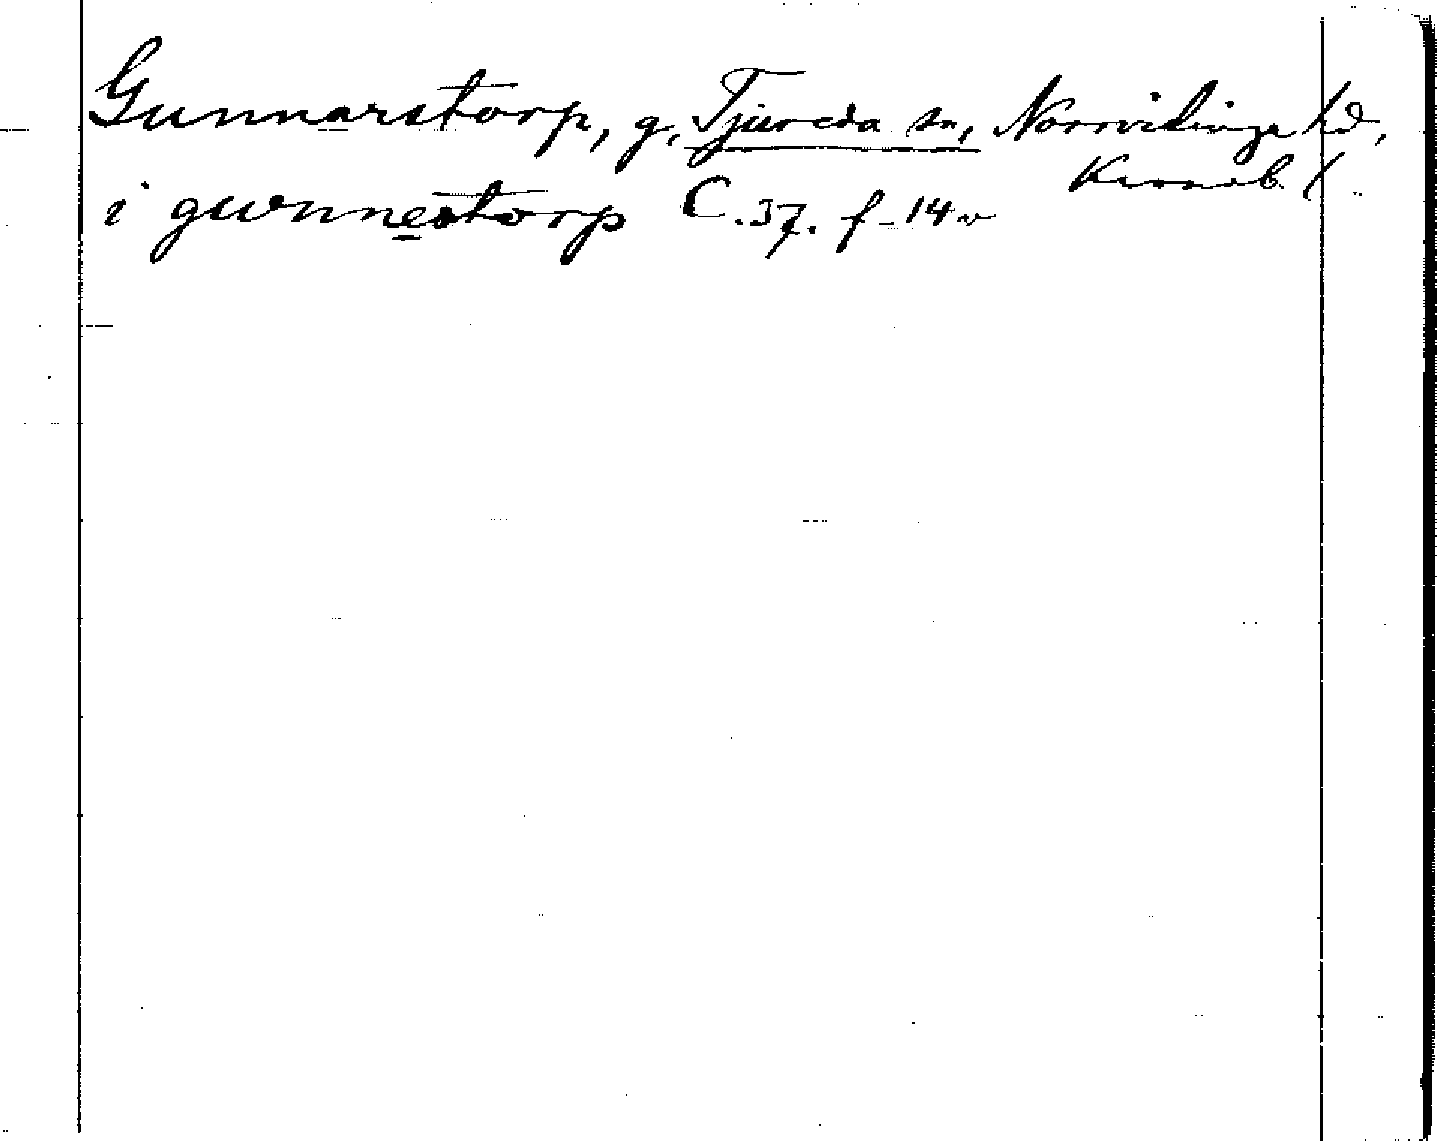 Gunnarstorp, g, Tjureda sn, Norrvidinge hd,
Kronob. l
i gwnnestorp C.37. f-14v